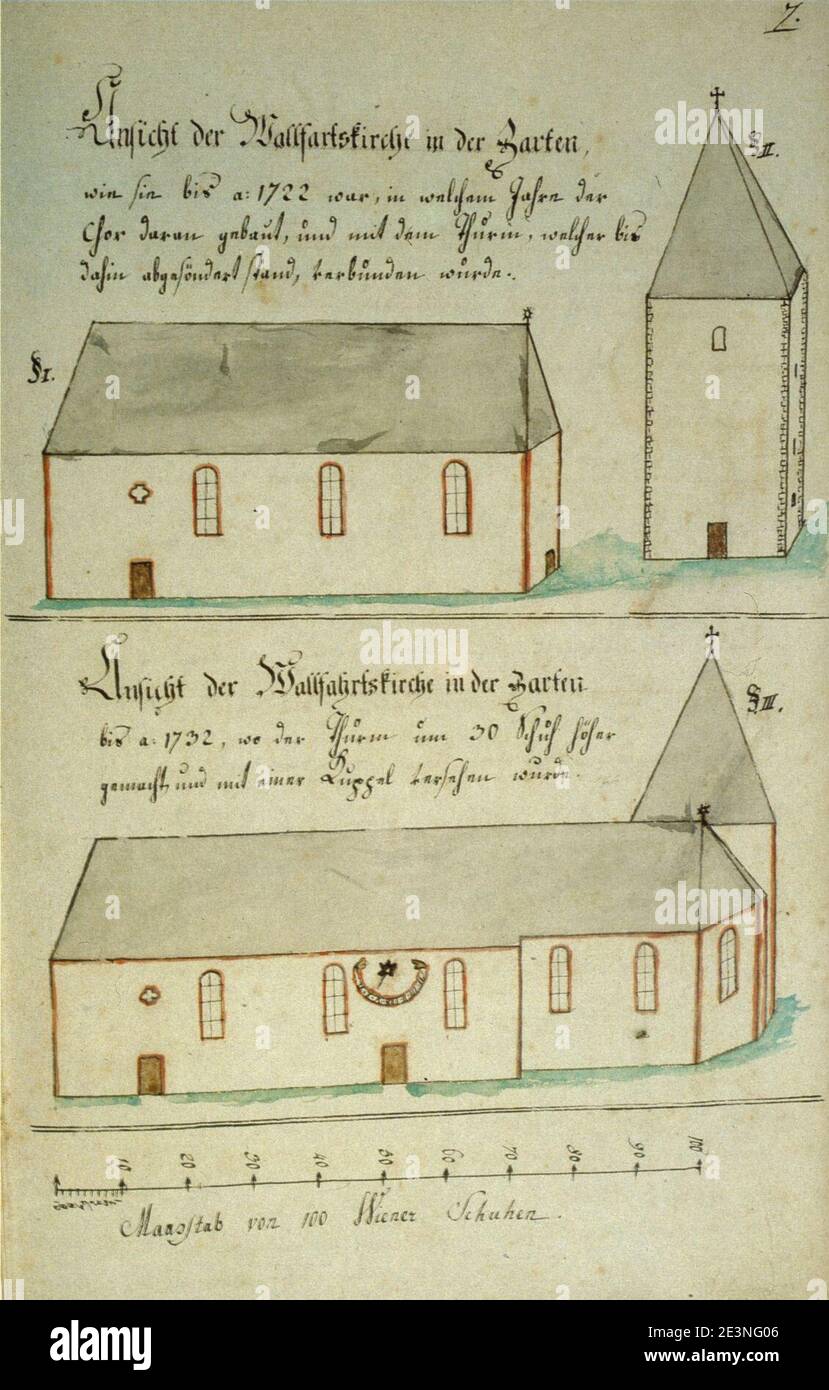 7.
Ansicht der Wallfartskirche in der Barten,
wie sie bis a: 1722 war, in welchem Jahre der
Chor daran gebaut, und mit dem Thurm, welcher bis
dahin abgesöndert stand, verbunden wurde.
§ II.
§ I.
Ansicht der Wallfahrtskirche in der Barten
bis a: 1732, wo der Thurm um 30 Schuh höher
gemacht, und mit einer Kuppel versehen wurde.
§ III.
10 20 30 40 50 60 70 80 90 100
Maasstab von 100 Wiener Schuhen.
alamy
Image ID: 2E3NG06
www.alamy.com